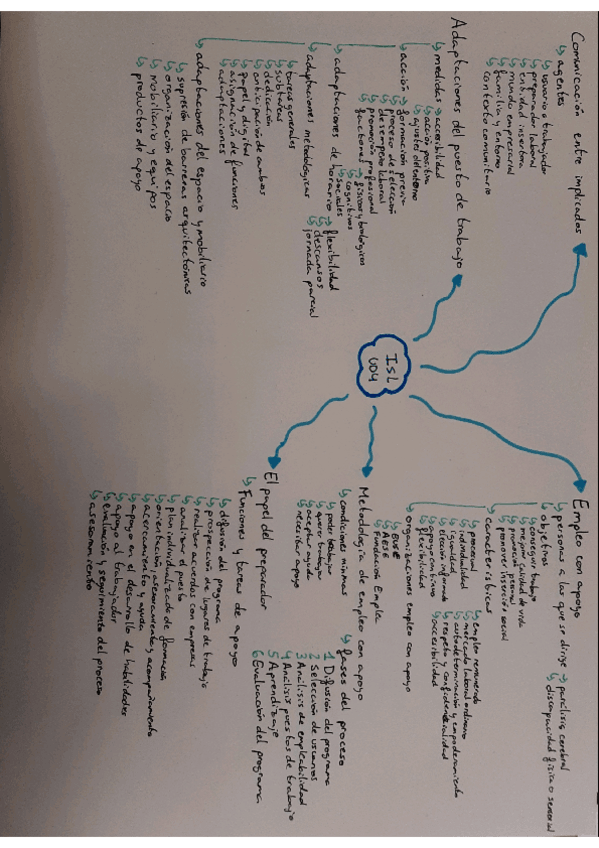 ISL
UD4
Comunicación entre implicados
↳ agentes
↳ usuario o trabajador
↳ preparador laboral
↳ entidad insertora
↳ mundo empresarial
↳ familia y entorno
↳ contexto comunitario
Adaptaciones del puesto de trabajo
↳ medidas
↳ accesibilidad
↳ acción positiva
↳ ajuste del entorno
↳ acción
↳ formación previa
↳ proceso de selección
↳ desempeño laboral
↳ promoción profesional
↳ factores
↳ físicos y biológicos
↳ cognitivos
↳ sociales
↳ adaptaciones de horario
↳ flexibilidad
↳ descansos
↳ jornada parcial
↳ adaptaciones metodológicas
↳ tareas generales
↳ subtareas
↳ dedicación
↳ anticipación de cambios
↳ papel y digital
↳ asignación de funciones
↳ adaptaciones
↳ adaptaciones del espacio y mobiliario
↳ supresión de barreras arquitectónicas
↳ organización del espacio
↳ mobiliario y equipos
↳ productos de apoyo
Empleo con apoyo
↳ personas a las que se dirige
↳ parálisis cerebral
↳ discapacidad física o sensorial
↳ objetivos
↳ conseguir trabajo
↳ mejorar calidad de vida
↳ promoción personal
↳ promover inserción social
↳ características
↳ procesual
↳ individualidad
↳ igualdad
↳ elección informada
↳ apoyo continuo
↳ flexibilidad
↳ empleo remunerado
↳ mercado laboral ordinario
↳ autodeterminación y empoderamiento
↳ respeto y confidencialidad
↳ accesibilidad
↳ organizaciones empleo con apoyo
↳ EUSE
↳ AESE
↳ Fundación Emplea
Metodología de empleo con apoyo
↳ condiciones mínimas
↳ poder trabajar
↳ querer trabajar
↳ aceptar ayuda
↳ necesitar apoyo
↳ fases del proceso
1 Difusión del programa
2 Selección de usuarios
3 Análisis de empleabilidad
4 Análisis puestos de trabajo
5 Aprendizaje
6 Evaluación del programa
El papel del preparador
↳ Funciones y tareas de apoyo
↳ difusión del programa
↳ prospección de lugares de trabajo
↳ realizar acuerdos con empresas
↳ analizar puesto
↳ plan individualizado de formación
↳ orientación, asesoramiento y acompañamiento
↳ acercamiento y ayuda
↳ apoyo en el desarrollo de habilidades
↳ apoyo al trabajador
↳ evaluación y seguimiento del proceso
↳ asesoramiento